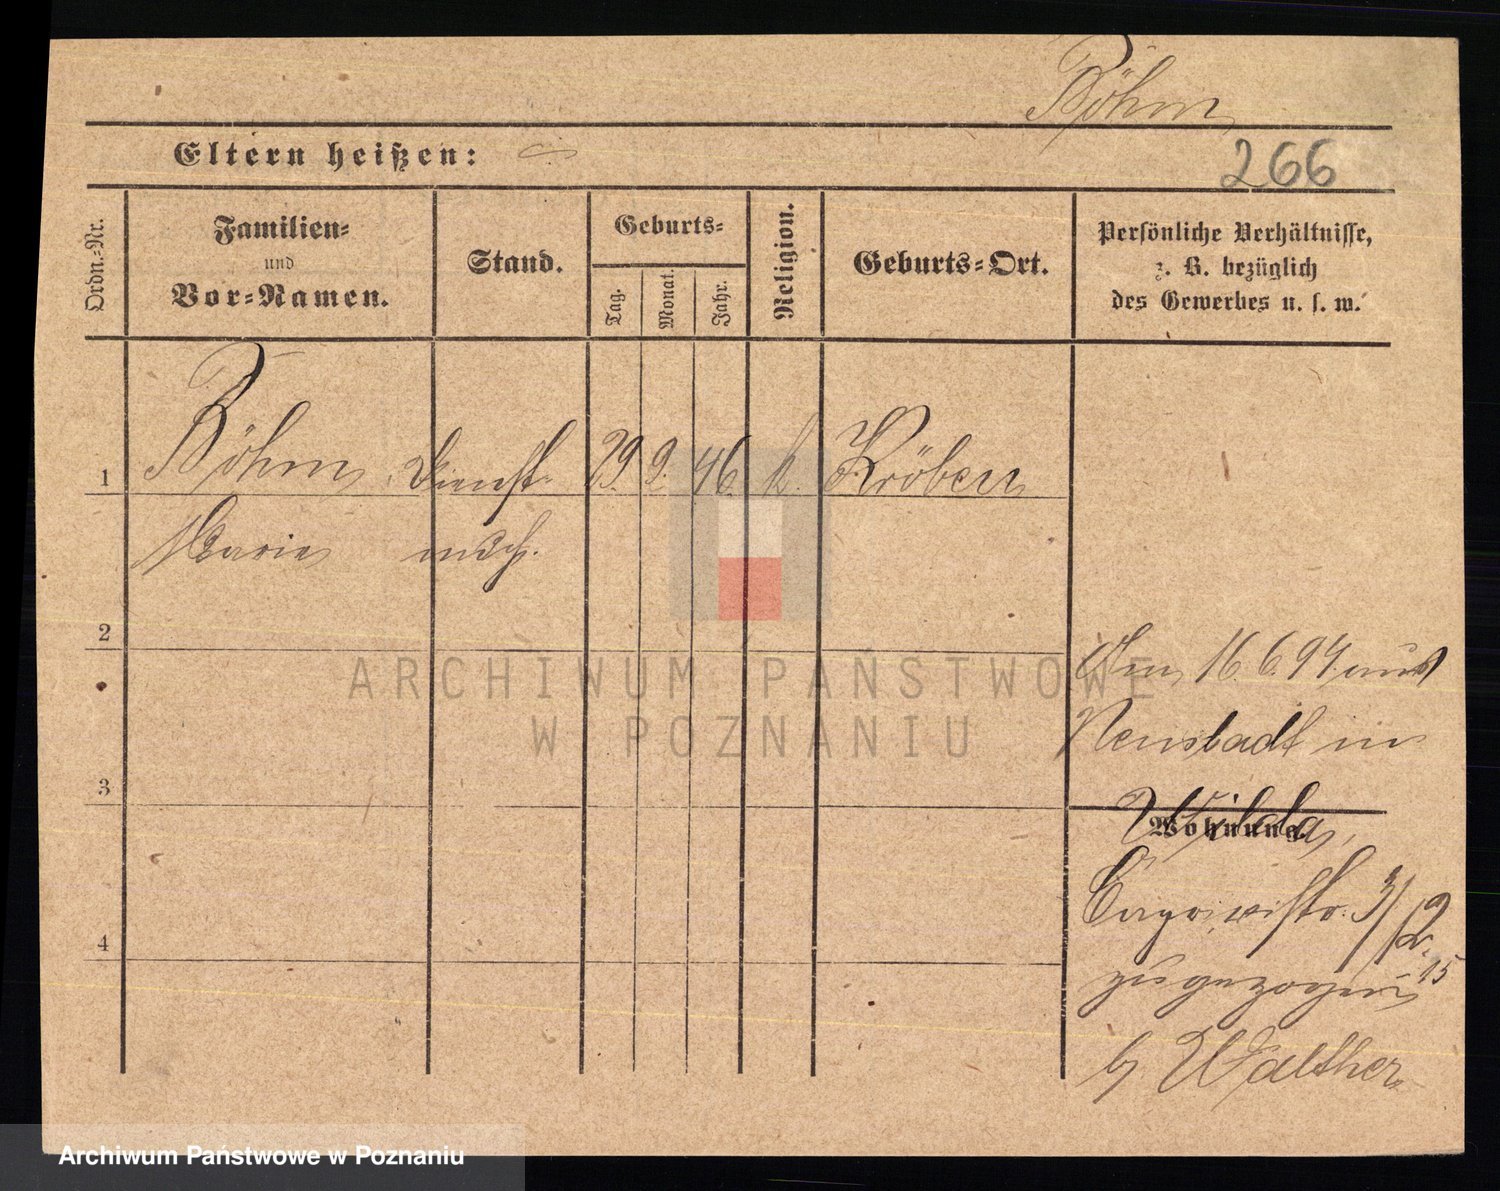 Böhm
Eltern heißen:
266
Ordn.-Nr.
Familien-
und
Vor-Namen.
Stand.
Geburts-
Tag.
Monat.
Jahr.
Religion.
Geburts-Ort.
Persönliche Verhältnisse,
z. B. bezüglich
des Gewerbes u. s. w.
1 Böhm Dienst- 29. 9. 46. k. Kröben
Marie mdch.
2
Am 16.6.94 aus
Neustadt in
3
Wilda,
Wohnung.
3/
4
zugezogen 15
b/ Walther
ARCHIWUM PAŃSTWOWE
W POZNANIU
Archiwum Państwowe w Poznaniu